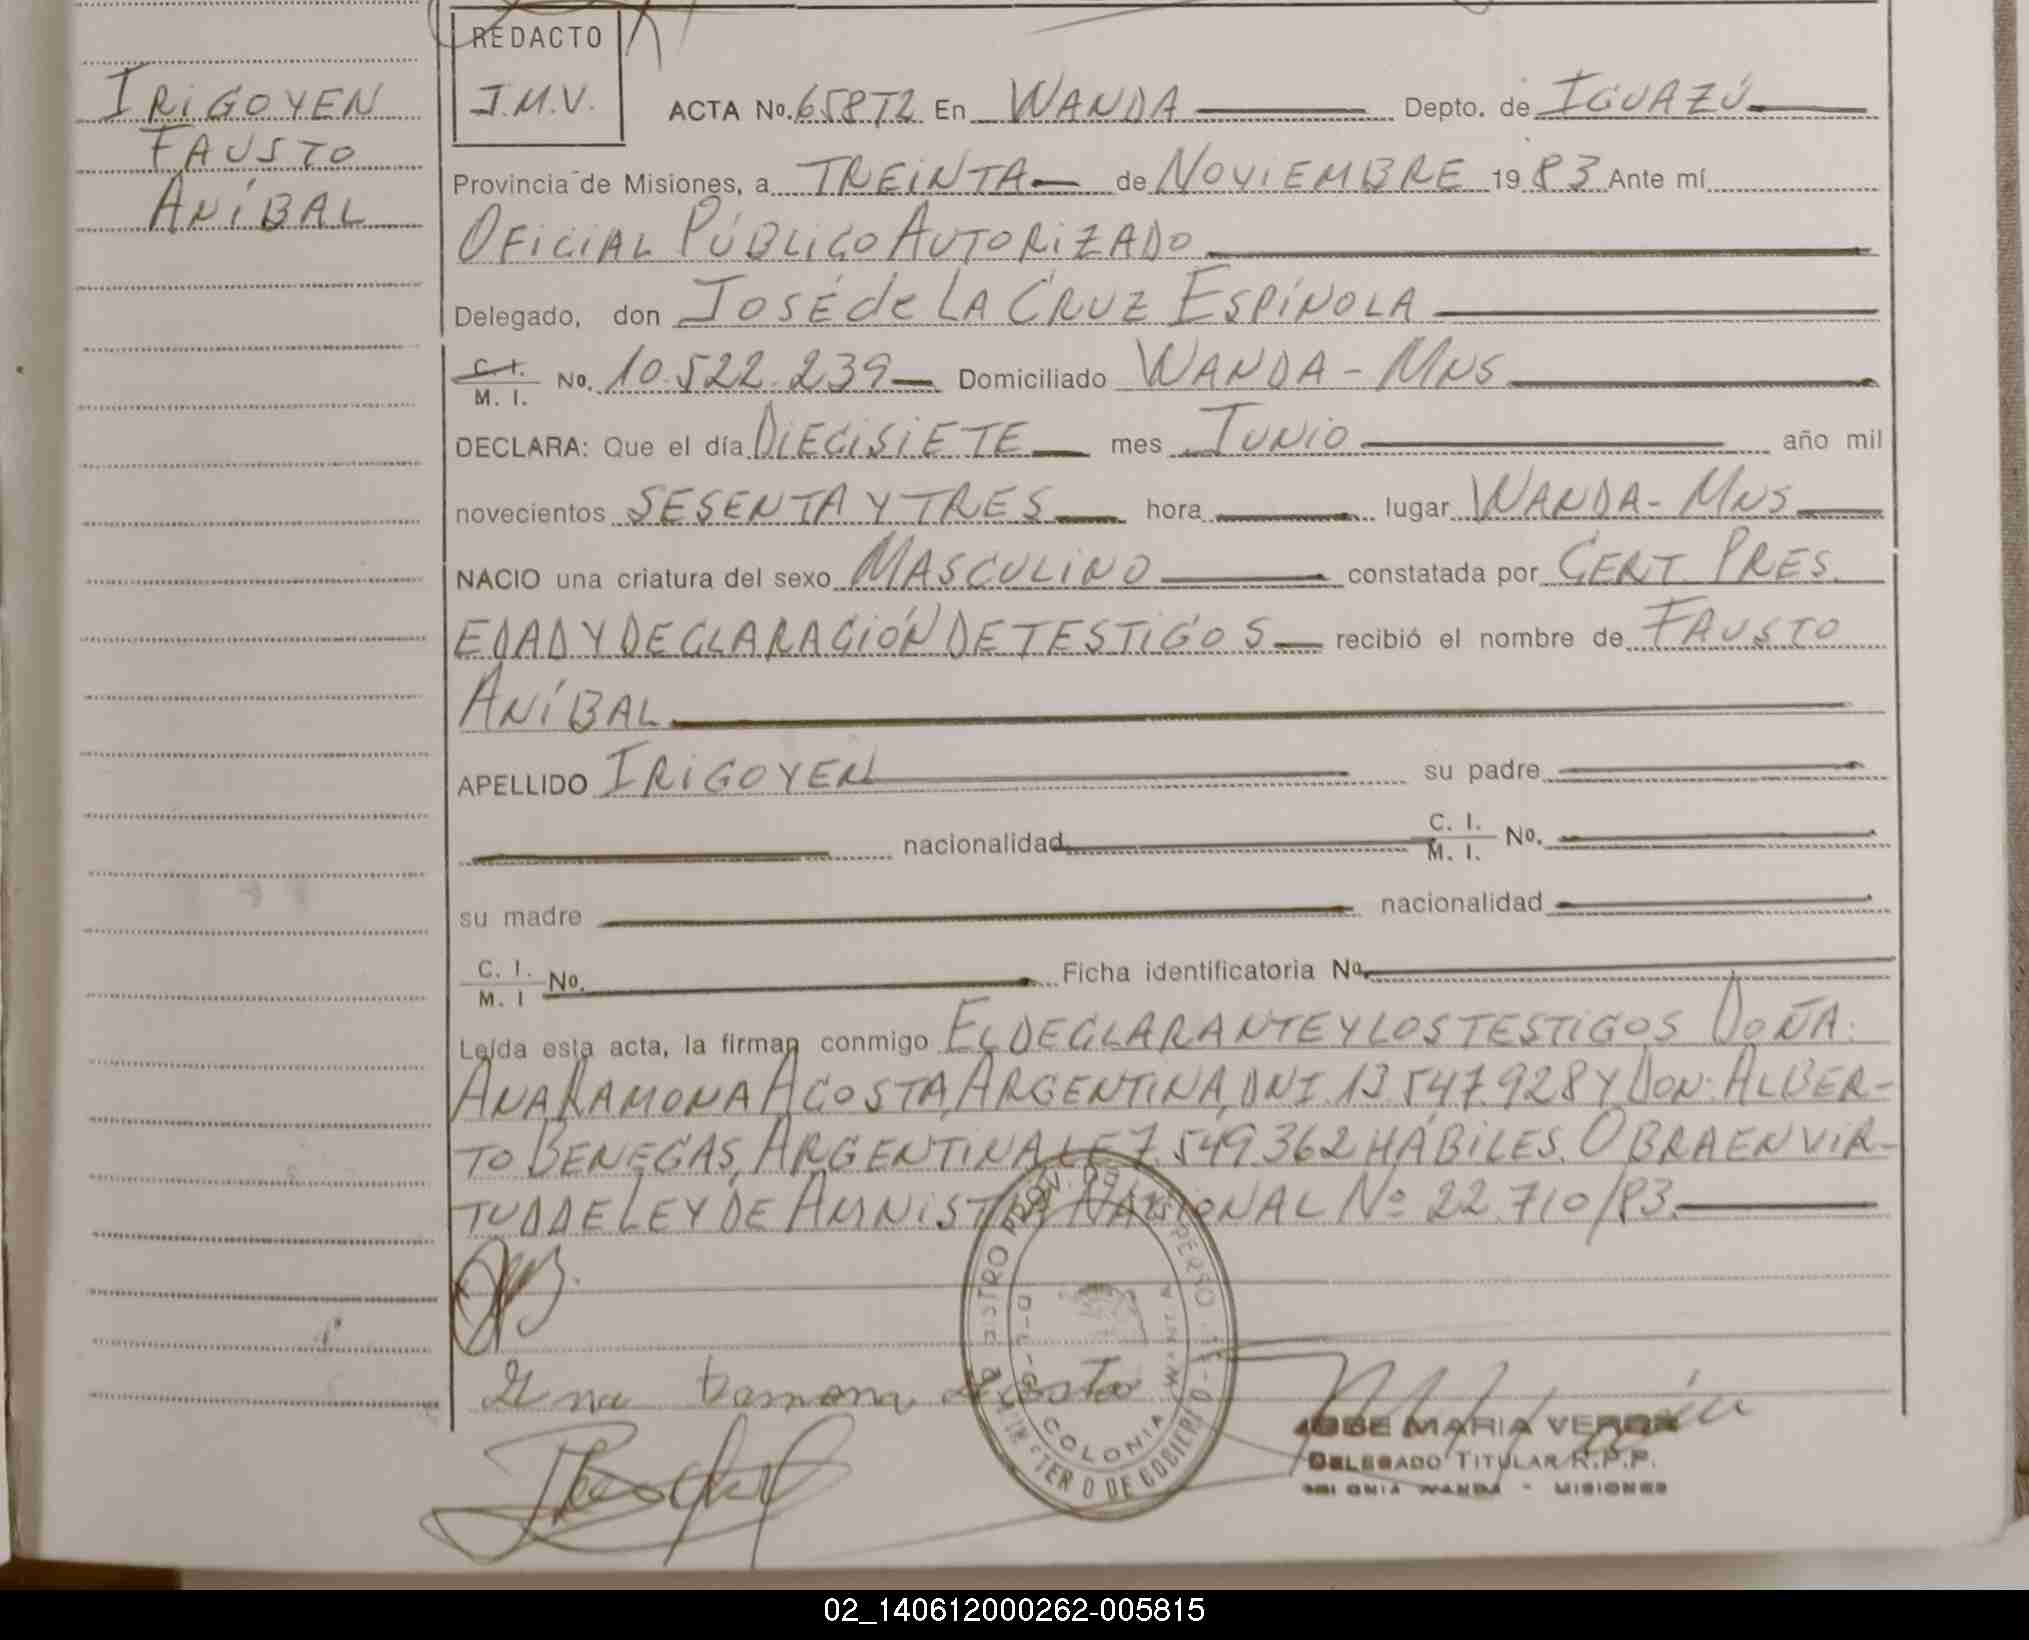 REDACTO
J.M.V.
IRIGOYEN
FAUSTO
ANÍBAL
ACTA No. 658T2 En WANDA Depto. de IGUAZÚ
Provincia de Misiones, a TREINTA de NOVIEMBRE 1983 Ante mí
OFICIAL PÚBLICO AUTORIZADO
Delegado, don JOSÉ de LA CRUZ ESPÍNOLA
C. I. / M. I. No. 10.522.239 Domiciliado WANDA - MNS
DECLARA: Que el día DIECISIETE mes JUNIO año mil
novecientos SESENTA Y TRES hora lugar WANDA - MNS
NACIO una criatura del sexo MASCULINO constatada por CERT. PRES.
EDAD Y DECLARACIÓN DE TESTIGOS recibió el nombre de FAUSTO
ANÍBAL
APELLIDO IRIGOYEN su padre
nacionalidad C. I. / M. I. No.
su madre nacionalidad
C. I. / M. I No. Ficha identificatoria No.
Leída esta acta, la firman conmigo EL DECLARANTE Y LOS TESTIGOS DOÑA:
ANA RAMONA ACOSTA, ARGENTINA, DNI. 13.547.928 Y DON: ALBER-
TO BENEGAS, ARGENTINA LE 7.549.362 HÁBILES. OBRA EN VIR-
TUD DE LEY DE AMNISTIA NACIONAL Nº 22.710/83.
Ana Ramona Acosta
COLONIA WANDA
MINISTERIO DE GOBIERNO
JOSE MARIA VERON
DELEGADO TITULAR R.P.P.
COLONIA WANDA - MISIONES
02_140612000262-005815